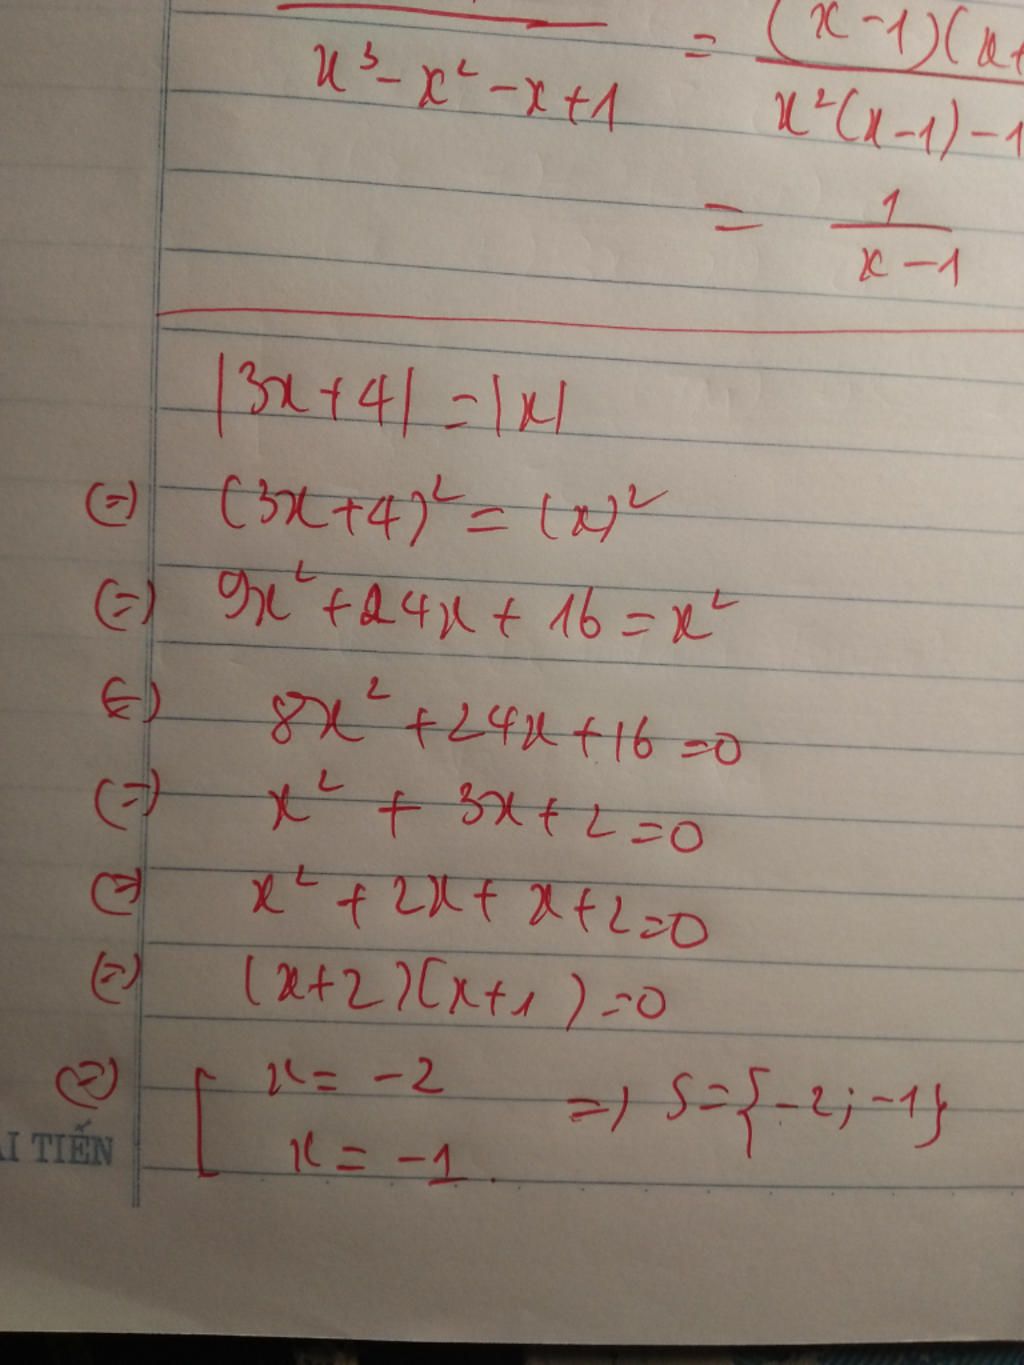 x³ - x² - x + 1 = (x - 1)(x+
x²(x - 1) - 1
= 1
x - 1
|3x + 4| = |x|
(=) (3x + 4)² = (x)²
(=) 9x² + 24x + 16 = x²
(=) 8x² + 24x + 16 = 0
(=) x² + 3x + 2 = 0
(=) x² + 2x + x + 2 = 0
(=) (x + 2)(x + 1) = 0
(=) [ x = -2 => S = {-2; -1}
x = -1.
I TIẾN